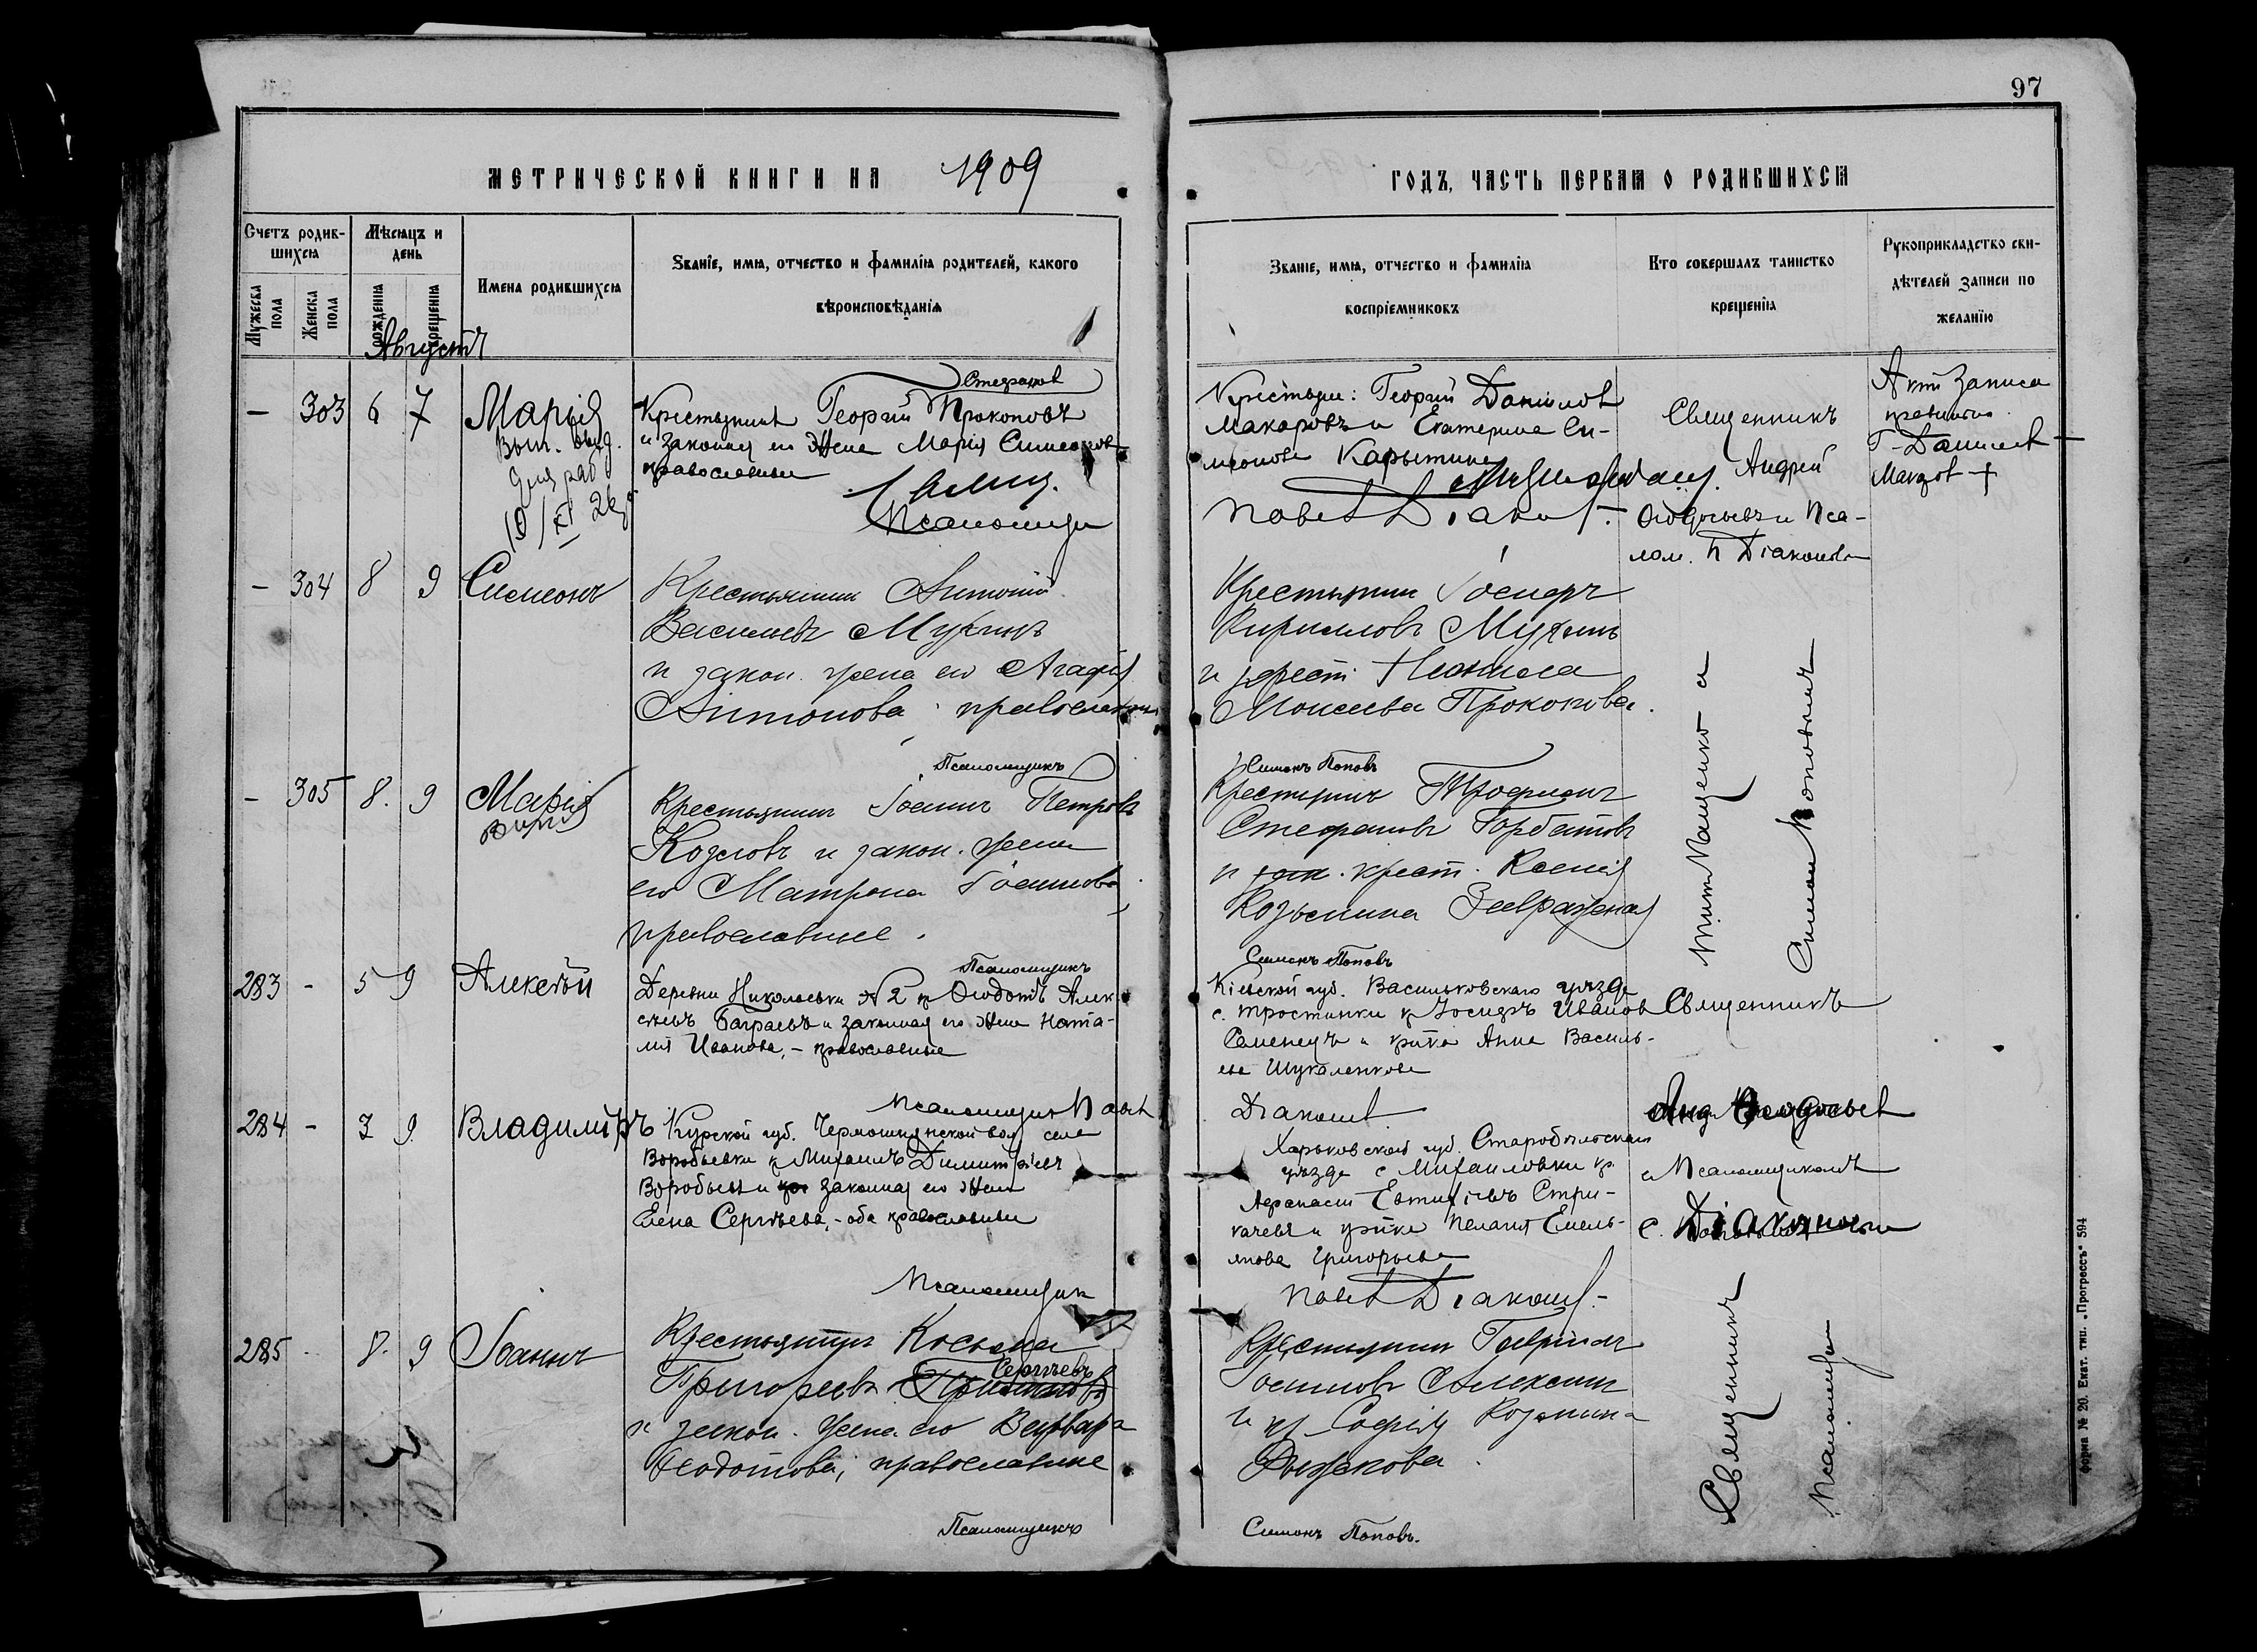 97
МЕТРИЧЕСКОЙ КНИГИ НА 1909
ГОДЪ, ЧАСТЬ ПЕРВАЯ О РОДИВШИХСЯ
Счетъ родив-
шихся
Мужеска
пола
Женска
пола
Мѣсяцъ и
день
рожденія
крещенія
Имена родившихся
Званіе, имя, отчество и фамилія родителей, какого
вѣроисповѣданія
Званіе, имя, отчество и фамилія
воспріемниковъ
Кто совершалъ таинство
крещенія
Рукоприкладство сви-
дѣтелей записи по
желанію
Августъ
— 303 6 7 Марія
10/XI 26 г.
Стефановъ
Крестьянинъ Георгій Прокоповъ
и законная его жена Марія Симеонов
православные
Псаломщик
Крестьяне: Георгій Даниловъ
Макаровъ и Екатерина Си-
меонова Карытина
Павелъ Діаконов.
Священникъ
Андрей
Ѳеодосьевъ и Пса-
лом. П Діаконовъ
Актъ записа
Г. Данилов
Макаров +
— 304 8 9 Симеонъ
Крестьянинъ Антоній
Васильевъ Мухинъ
и закон. жена его Агафія
Антонова православные
Псаломщикъ
Крестьянинъ Іосифъ
Кирилловъ Мухинъ
и крест.
Моисеева Прокопова.
Симонъ Поповъ
— 305 8. 9 Марія
Крестьянинъ Іоаннъ Петровъ
Козловъ и закон. жена
его Матрона Іоаннова,
православные.
Псаломщикъ
Крестьянинъ Трофимъ
Стефановъ Горбатовъ
и крест. Ксенія
Козьмина
Симонъ Поповъ
283 — 5 9 Алексѣй
Деревни Николаевки № 2 к Ѳеодотъ Алек-
сѣевъ Баграевъ и законная его жена Ната-
лія Иванова, — православные
Псаломщик Павел
Кіевской губ. Васильковскаго уѣзда
с. Тростинки к Іосифъ Иванов
Саменецъ и кр-тка Анна Василь-
ева Шукаленкова
Діаконов
Священникъ
284 — 3 9 Владиміръ
Курской губ. Чермошнянской вол. села
Воробьевки к Михаилъ Димитріевъ
Воробьевъ и законная его жена
Елена Сергѣева, — оба православные
Псаломщик
Харьковской губ. Старобѣльскаго
уѣзда с Михайловки кр.
Аѳанасій Евтихіевъ Стри-
качевъ и кр-тка Пелагія Емель-
янова Григорьева
Павел Діаконов.
Анд Ѳеодосьев
с Псаломщикомъ
285 8. 9 Іоаннъ
Крестьянинъ Косьма
Сергѣевъ
Григорьевъ
и закон. жена его Варвара
Ѳеодотова, православные
Псаломщикъ
Крестьянинъ Гавріилъ
Іоанновъ Алехинъ
и кр. Софія Козьмина
Рыжкова.
Симонъ Поповъ.
Священникъ
Псаломщик
Форма № 20. Екат. тип. „Прогрессъ“ 594